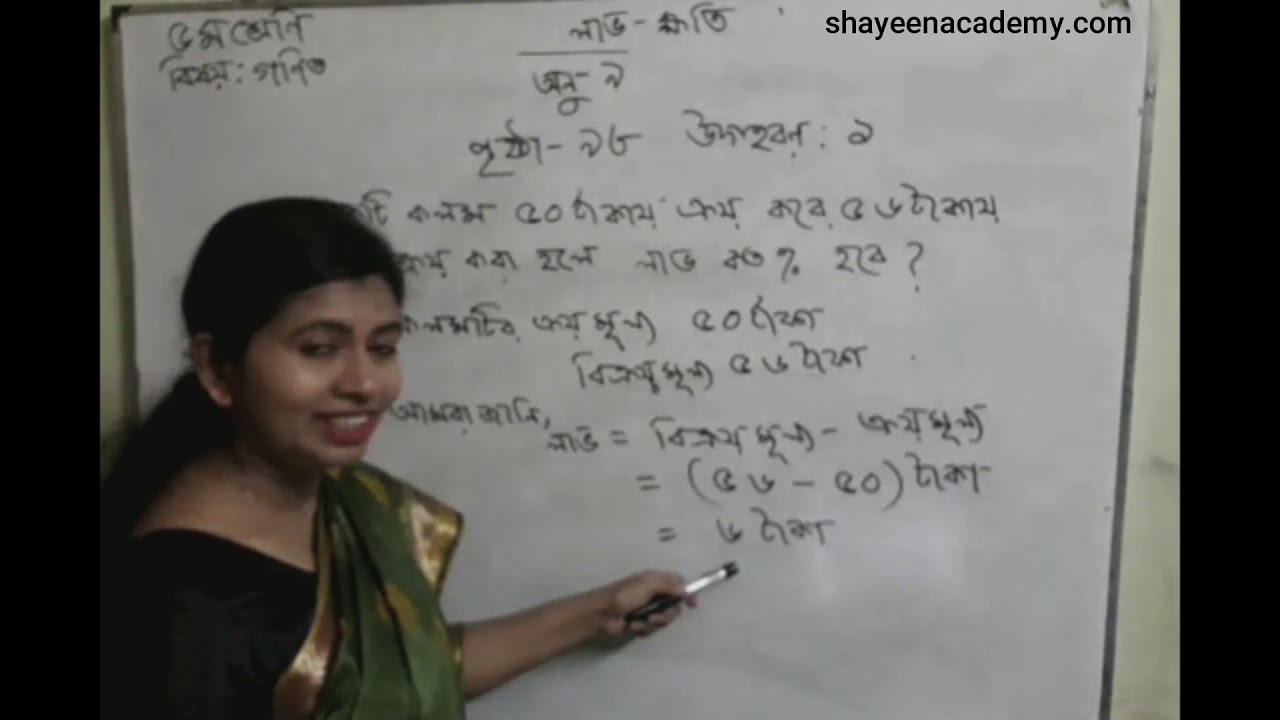 shayeenacademy.com
৫ম শ্রেণি
বিষয়: গণিত
লাভ-ক্ষতি
অনু-৯
পৃষ্ঠা-৯৫ উদাহরণ: ১
কলম ৫০ টাকায় ক্রয় করে ৫৬ টাকায়
করা হলে লাভ কত % হবে?
কলমটির ক্রয়মূল্য ৫০ টাকা
বিক্রয়মূল্য ৫৬ টাকা
আমরা জানি,
লাভ = বিক্রয়মূল্য - ক্রয়মূল্য
= (৫৬ - ৫০) টাকা
= ৬ টাকা